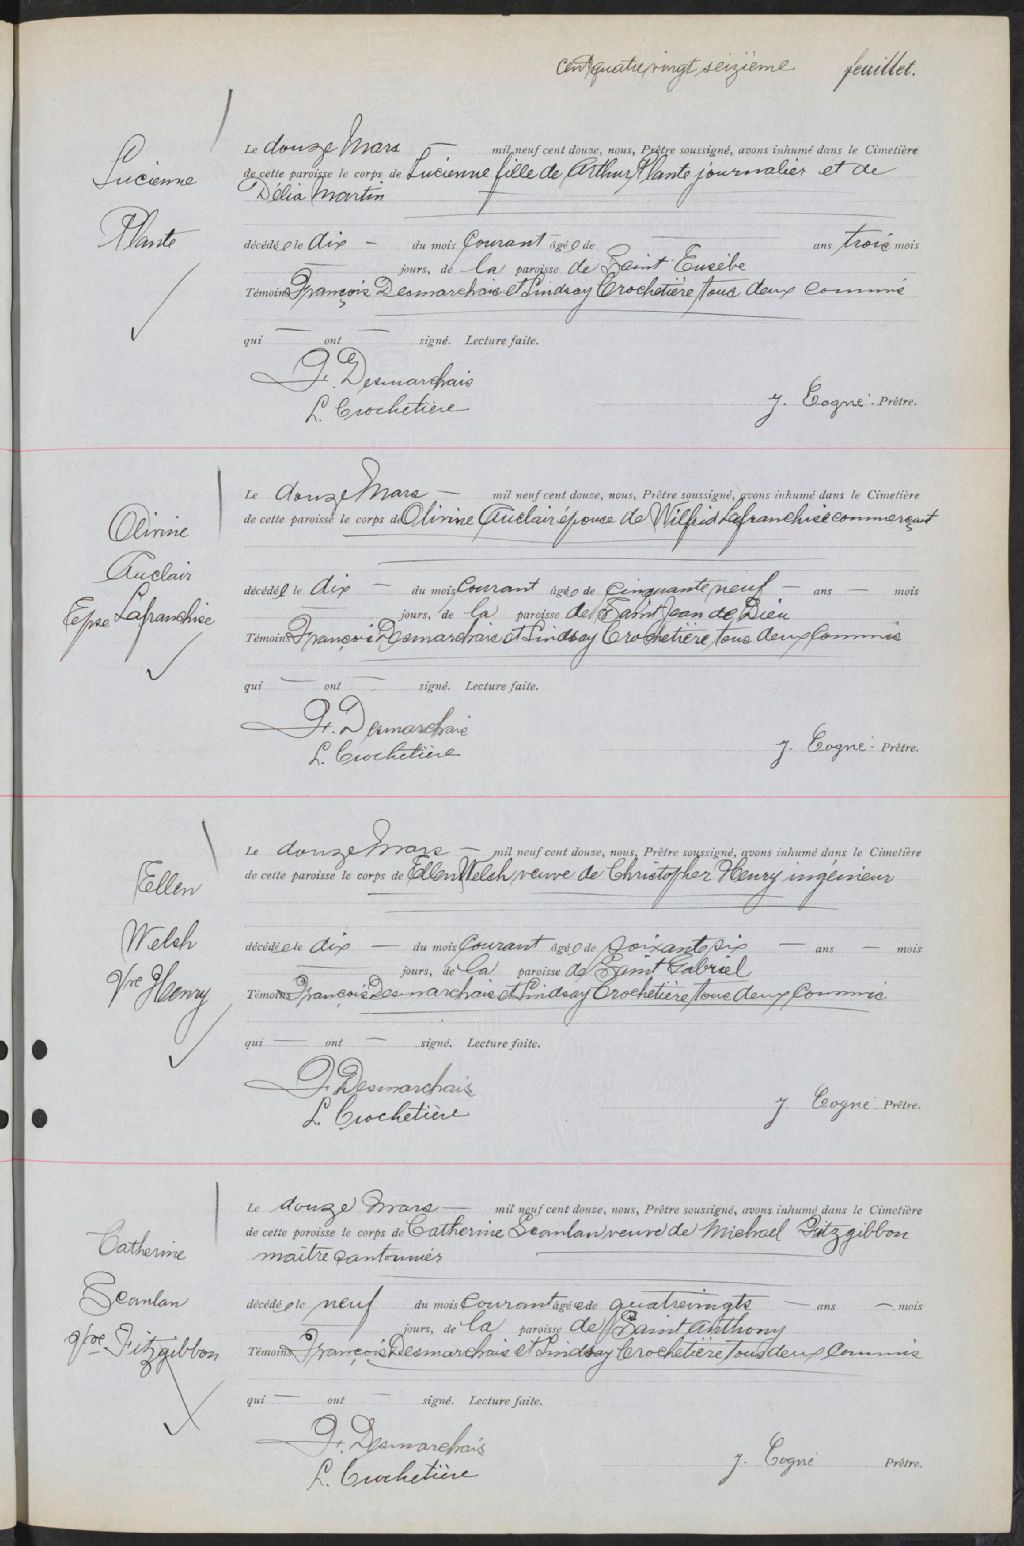 Cent quatre vingt seizième feuillet.
Lucienne
Plante
Le douze Mars — mil neuf cent douze, nous, Prêtre soussigné, avons inhumé dans le Cimetière
de cette paroisse le corps de Lucienne fille de Arthur Plante journalier et de
Délia Martin
décédée le dix — du mois Courant âgée de — ans trois mois
— jours, de la paroisse de Saint Eusèbe
Témoins François Desmarchais et Lindsay Crochetière tous deux commis
qui — ont — signé. Lecture faite.
F. Desmarchais
L. Crochetière
J. Cogné. Prêtre.
Olivine
Auclair
Epse Lafranchise
Le douze Mars — mil neuf cent douze, nous, Prêtre soussigné, avons inhumé dans le Cimetière
de cette paroisse le corps de Olivine Auclair épouse de Wilfrid Lafranchise commerçant
décédée le dix — du mois Courant âgée de cinquante neuf — ans — mois
— jours, de la paroisse de Saint Jean de Dieu
Témoins François Desmarchais et Lindsay Crochetière tous deux Commis
qui — ont — signé. Lecture faite.
F. Desmarchais
L. Crochetière
J. Cogné. Prêtre.
Ellen
Welsh
Vve Henry
Le douze Mars — mil neuf cent douze, nous, Prêtre soussigné, avons inhumé dans le Cimetière
de cette paroisse le corps de Ellen Welsh veuve de Christopher Henry ingénieur
décédée le dix — du mois Courant âgée de soixante six — ans — mois
— jours, de la paroisse de Saint Gabriel
Témoins François Desmarchais et Lindsay Crochetière tous deux Commis
qui — ont — signé. Lecture faite.
F. Desmarchais
L. Crochetière
J. Cogné. Prêtre.
Catherine
Scanlan
Vve Fitzgibbon
Le douze Mars — mil neuf cent douze, nous, Prêtre soussigné, avons inhumé dans le Cimetière
de cette paroisse le corps de Catherine Scanlan veuve de Michael Fitzgibbon
maitre cantonnier
décédée le neuf du mois Courant âgée de quatrevingts — ans — mois
jours, de la paroisse de Saint Anthony
Témoins François Desmarchais et Lindsay Crochetière tous deux Commis
qui — ont — signé. Lecture faite.
F. Desmarchais
L. Crochetière
J. Cogné Prêtre.